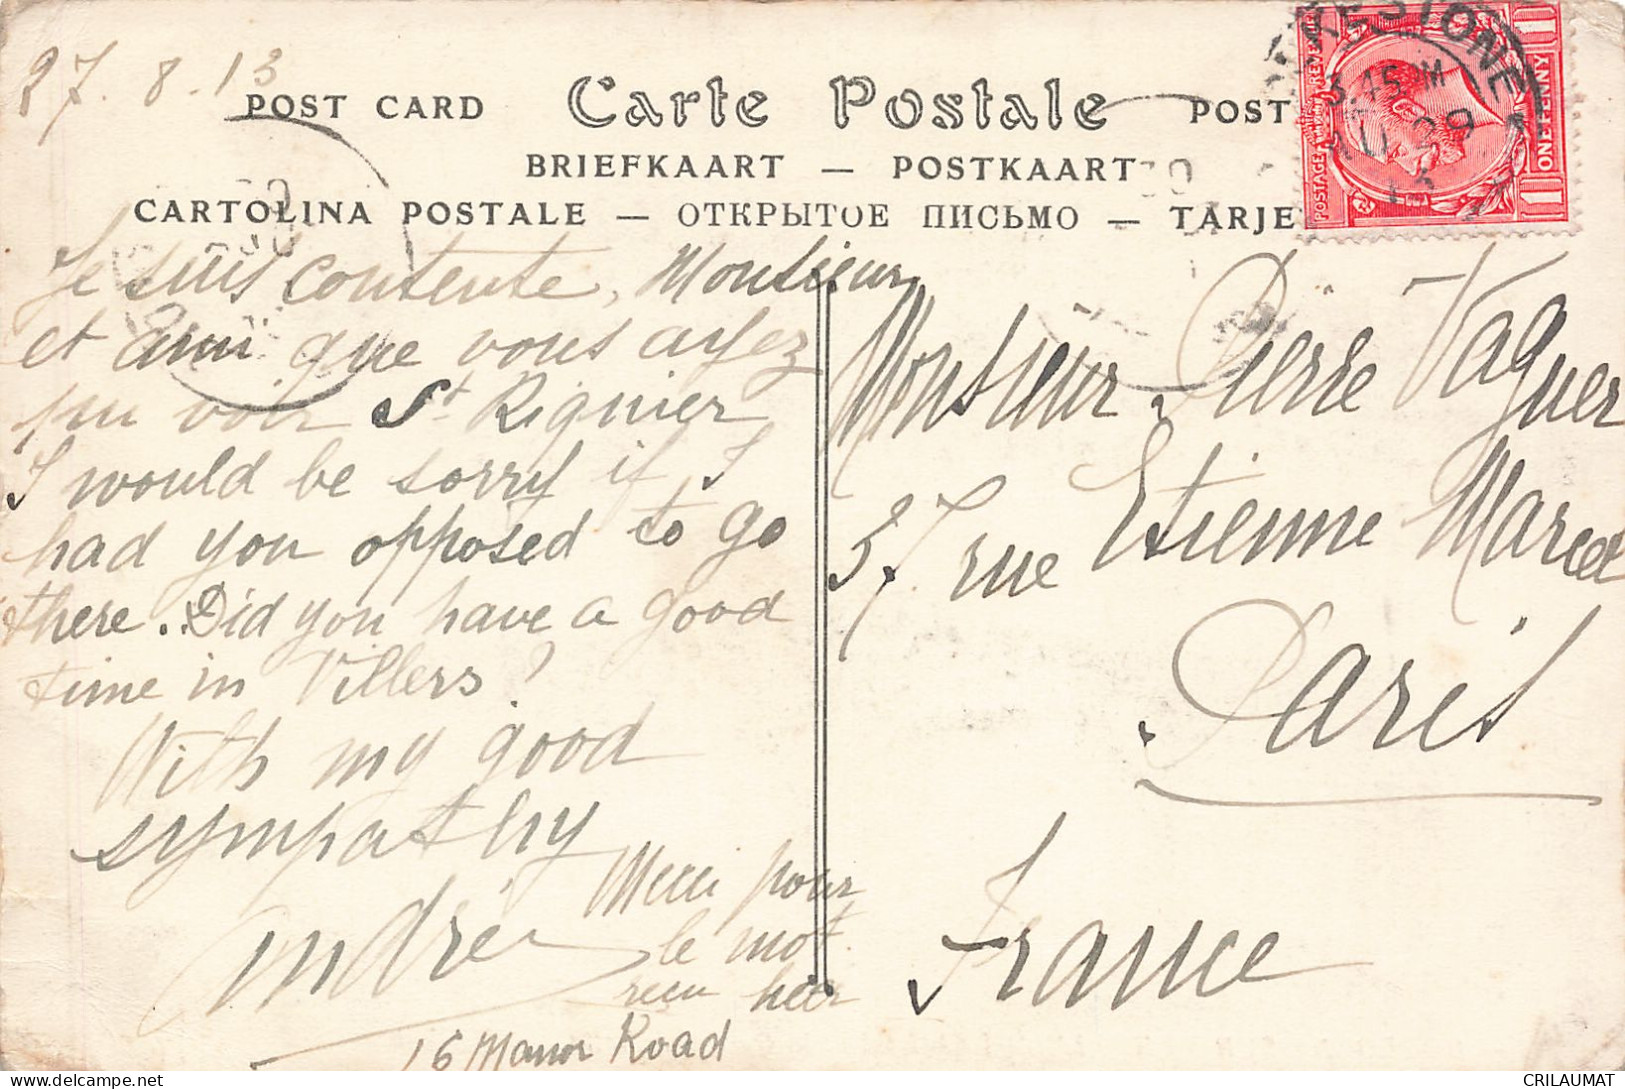 27.8.13
POST CARD Carte Postale POST
BRIEFKAART — POSTKAART
CARTOLINA POSTALE — ОТКРЫТОЕ ПИСЬМО — TARJE
Je suis contente, Monsieur
et ami que vous ayez
pu voir St Riquier
I would be sorry if I
had you opposed to go
there. Did you have a good
time in Villers?
With my good
sympathy
Andrée
Merci pour
le mot
reçu hier
16 Manor Road
Monsieur Pierre Vaguer
57 rue Etienne Marcel
Paris
France
FOLKESTONE
3.45 M
AU 29
13
POSTAGE REVENUE
ONE PENNY
1 1
CRILAUMAT